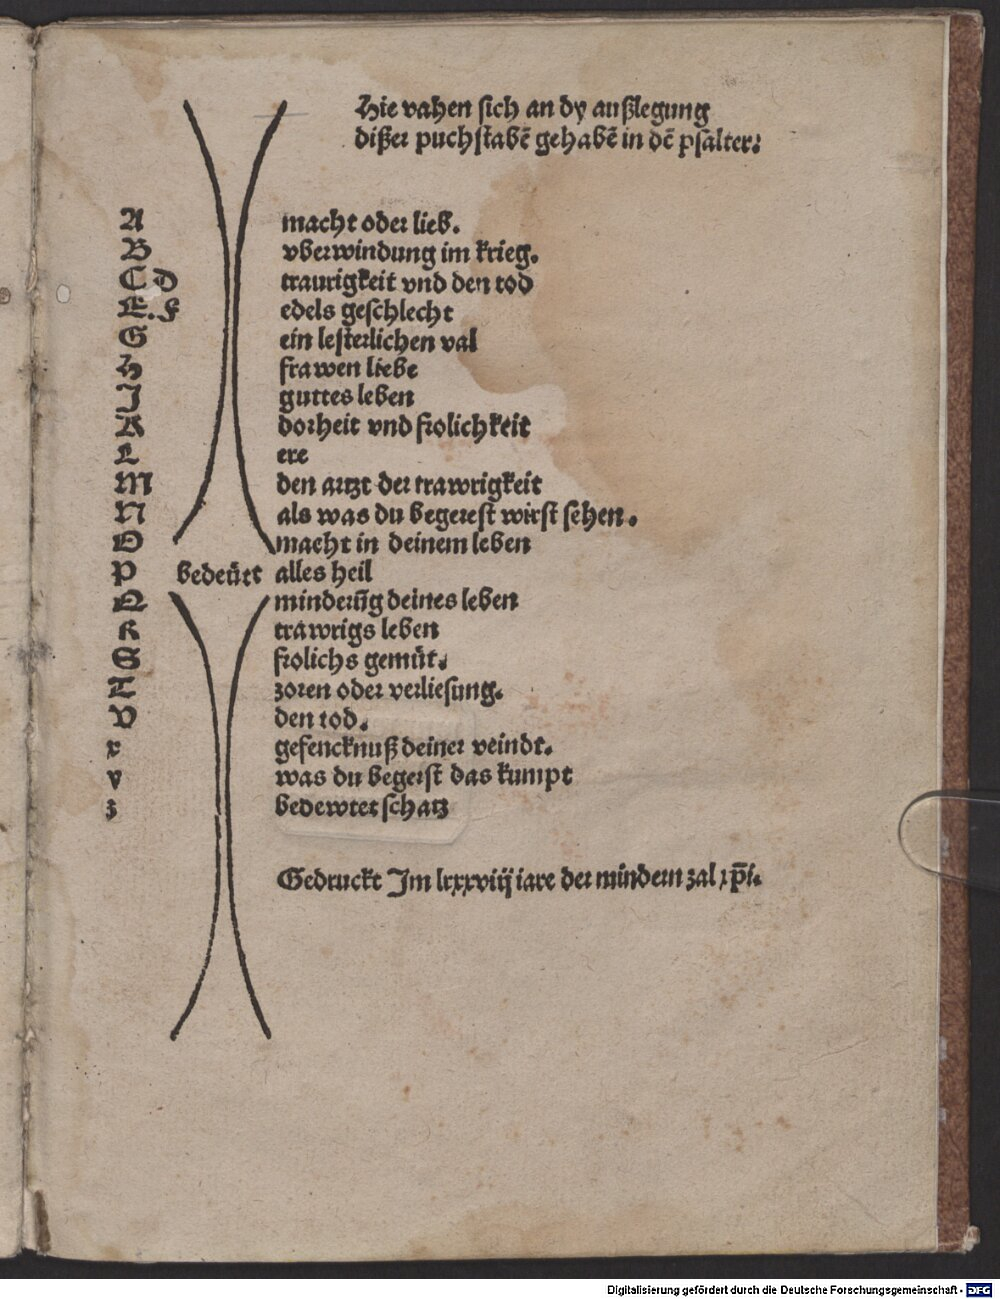 Hie vahen sich an dy außlegung
dißer puchstabē gehabē in dē psalter:
A macht oder lieb.
B vberwindung im krieg.
C D traurigkeit vnd den tod
E. F edels geschlecht
G ein lesterlichen val
H frawen liebe
J guttes leben
K dorheit vnd frolichkeit
L ere
M den artzt der trawrigkeit
N als was du begerest wirst sehen.
O macht in deinem leben
P bedeütt alles heil
Q minderūg deines leben
R trawrigs leben
S frolichs gemüt.
T zoren oder verliesung.
V den tod.
x gefencknuß deiner veindt.
y was du begerst das kumpt
z bedewtet schatz
Gedruckt Jm lxxxviiij iare der mindern zal xp̄i.
Digitalisierung gefördert durch die Deutsche Forschungsgemeinschaft - DFG